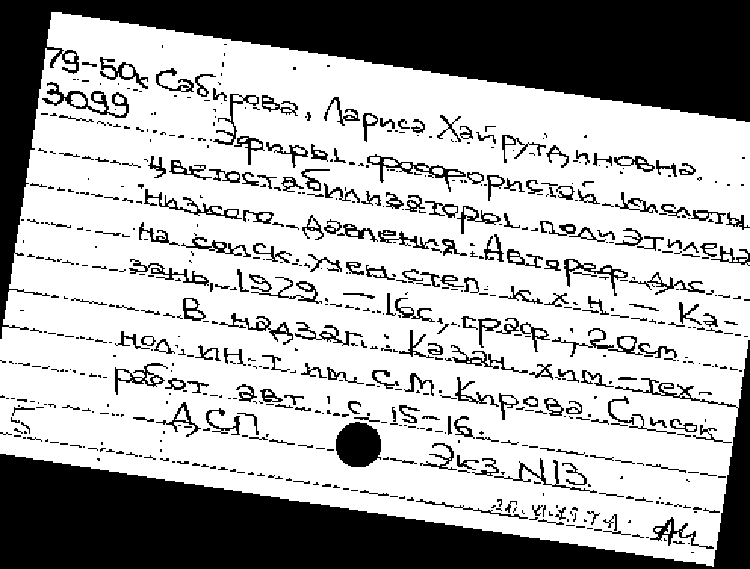 79-50к Сабирова, Лариса Хайрутдиновна.
3099
Эфиры фосфористой кислоты
цветостабилизаторы полиэтилена
низкого давления: Автореф. дис
на соиск. учен. степ. к.х.н. — Ка-
зань, 1979. — 16с, граф.; 20см
В надзаг.: Казан. хим.-тех-
нол. ин-т им. С.М. Кирова. Список
работ авт.: с. 15-16.
ДСП
5
Экз. N13.
АЧ